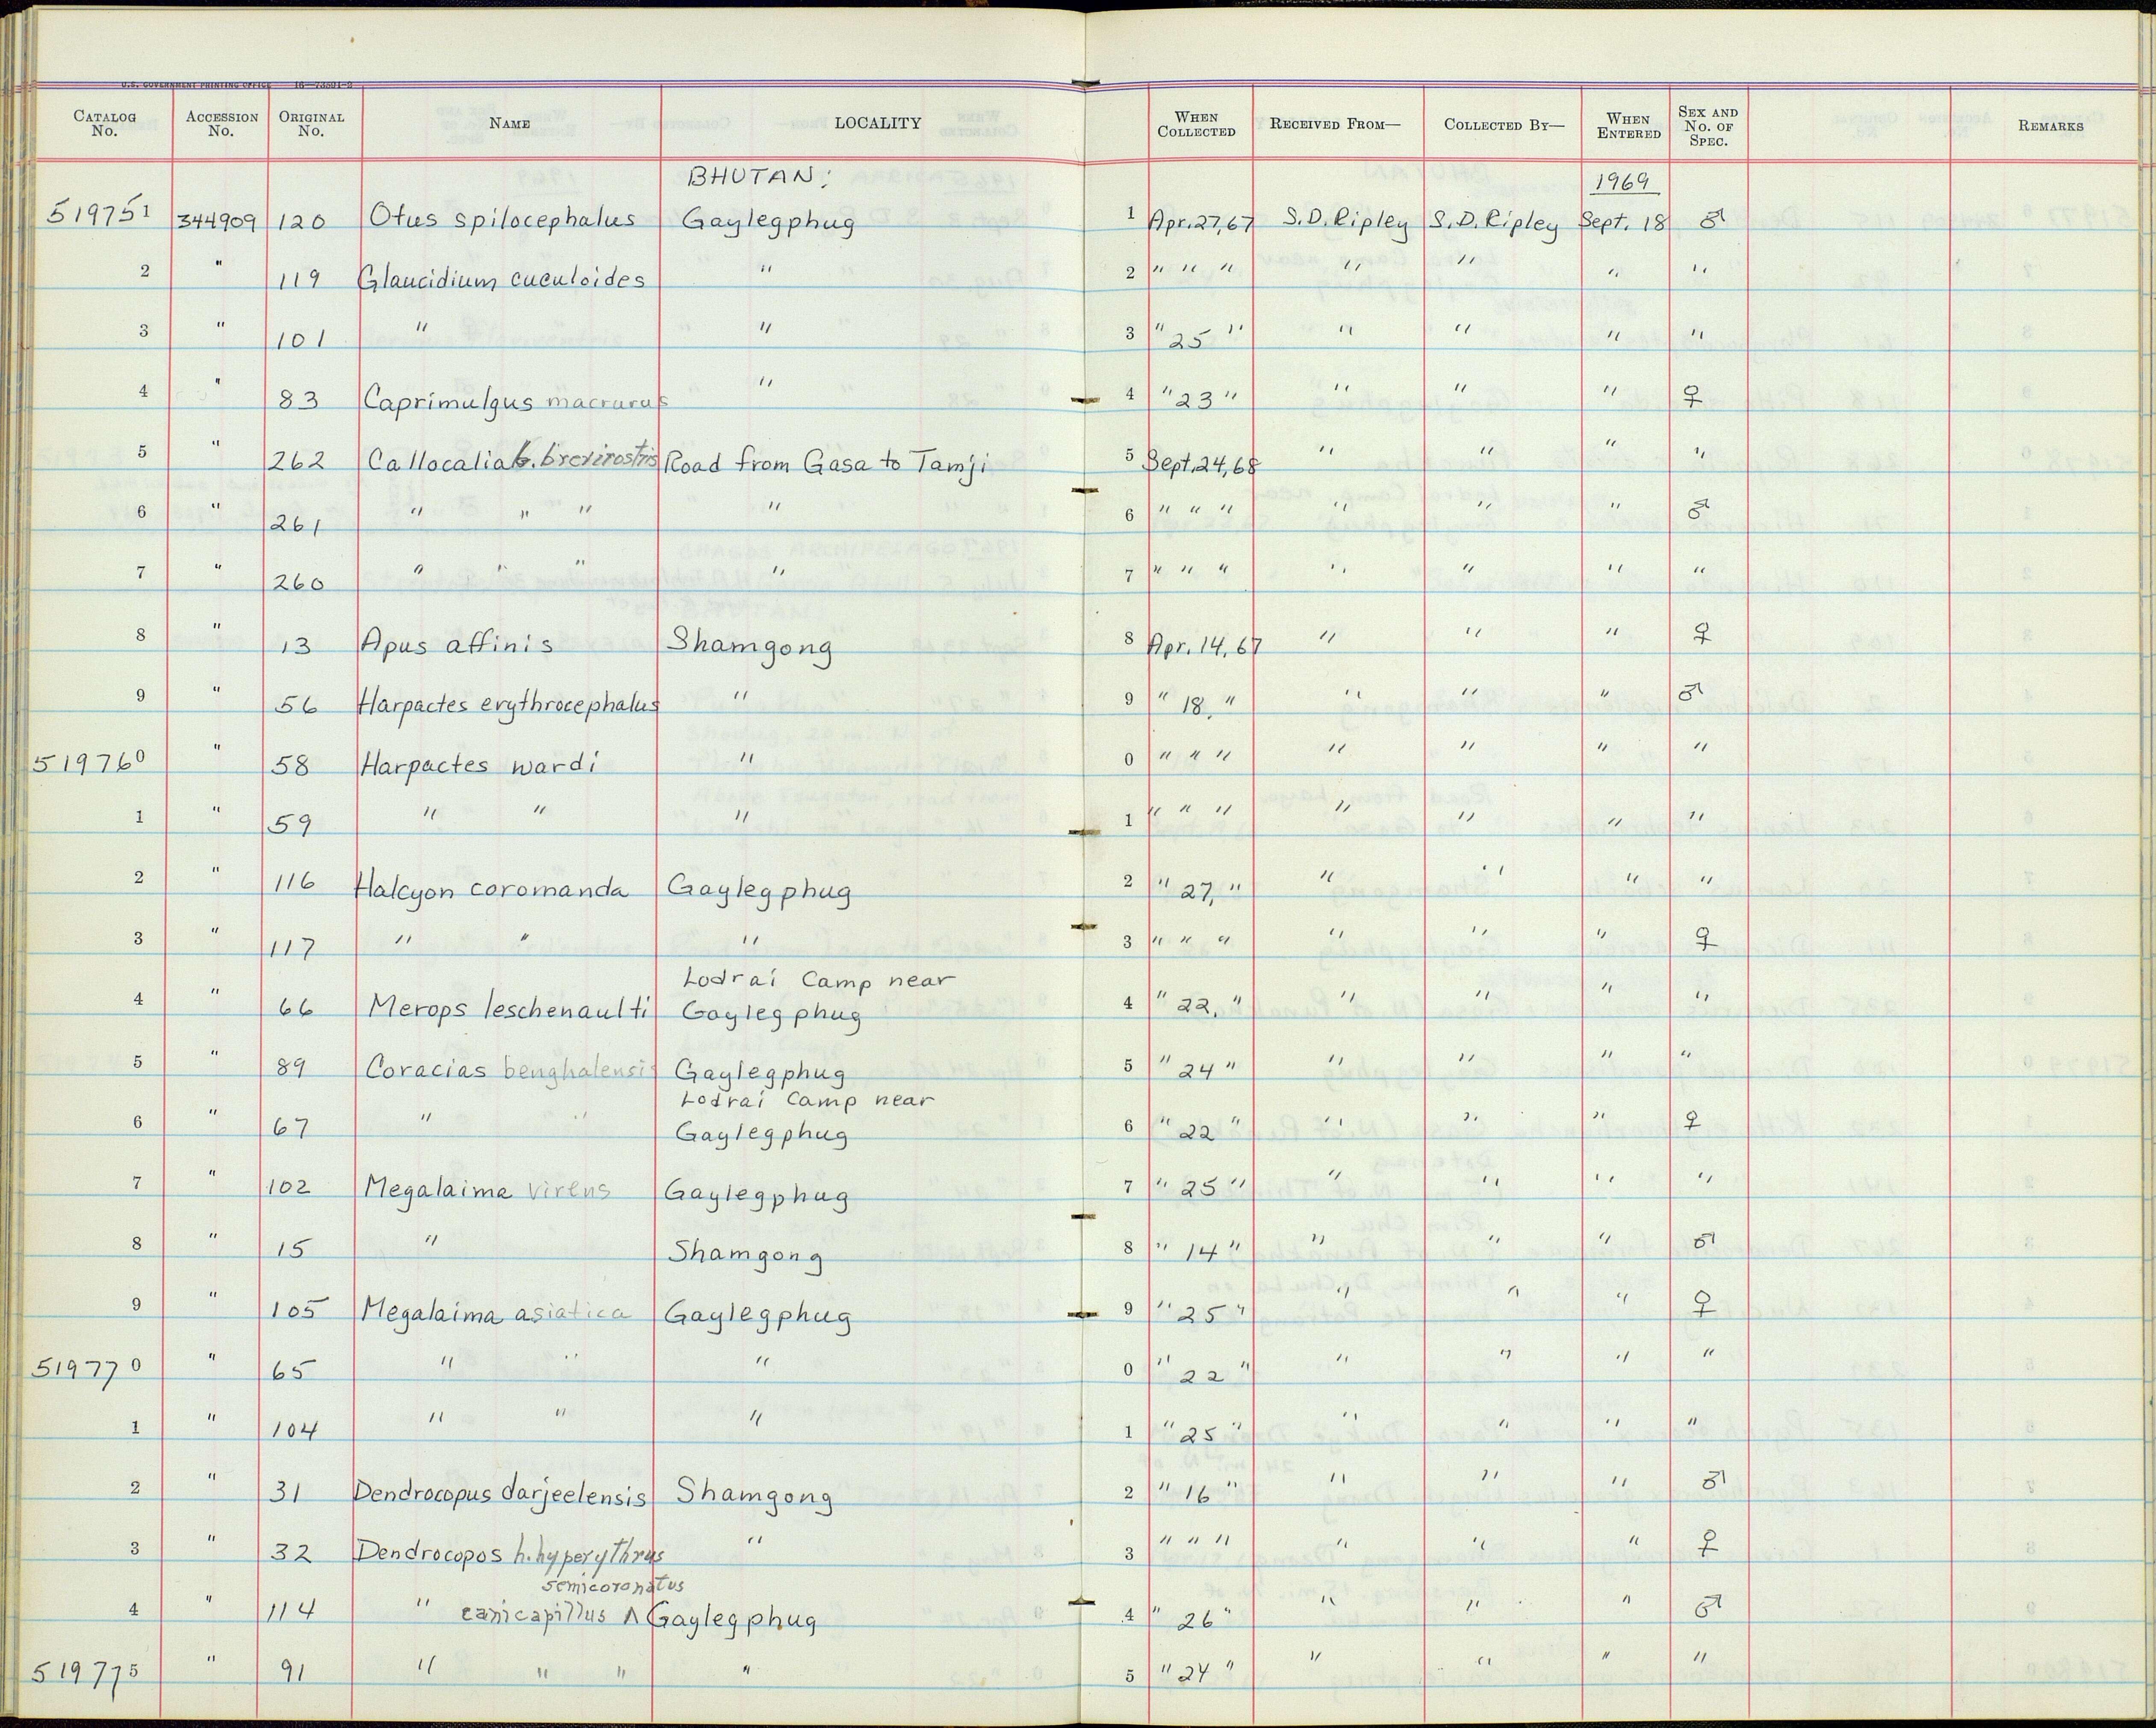 U.S. GOVERNMENT PRINTING OFFICE 16—73591-2
CATALOG No. ACCESSION No. ORIGINAL No. NAME LOCALITY WHEN COLLECTED RECEIVED FROM— COLLECTED BY— WHEN ENTERED SEX AND No. OF SPEC. REMARKS
BHUTAN: 1969
519751 344909 120 Otus spilocephalus Gaylegphug 1 Apr.27,67 S.D.Ripley S.D.Ripley Sept. 18 ♂
2 " 119 Glaucidium cuculoides " 2 " " " " " " "
3 " 101 " " 3 " 25 " " " " "
4 " 83 Caprimulgus macrurus " 4 " 23 " " " " ♀
5 " 262 Callocalia b. brevirostris Road from Gasa to Tamji 5 Sept.24,68 " " " "
6 " 261 " " " " 6 " " " " " " ♂
7 " 260 " " " " 7 " " " " " " "
8 " 13 Apus affinis Shamgong 8 Apr.14,67 " " " ♀
9 " 56 Harpactes erythrocephalus " 9 " 18, " " " " ♂
519760 " 58 Harpactes wardi " 0 " " " " " " "
1 " 59 " " " 1 " " " " " " "
2 " 116 Halcyon coromanda Gaylegphug 2 " 27, " " " " "
3 " 117 " " " 3 " " " " " " ♀
Lodrai Camp near
4 " 66 Merops leschenaulti Gaylegphug 4 " 22, " " " " "
5 " 89 Coracias benghalensis Gaylegphug 5 " 24 " " " " "
Lodrai Camp near
6 " 67 " " Gaylegphug 6 " 22 " " " " ♀
7 " 102 Megalaima virens Gaylegphug 7 " 25 " " " " "
8 " 15 " Shamgong 8 " 14 " " " " ♂
9 " 105 Megalaima asiatica Gaylegphug 9 " 25 " " " " ♀
519770 " 65 " " " 0 " 22 " " " " "
1 " 104 " " " 1 " 25 " " " " "
2 " 31 Dendrocopus darjeelensis Shamgong 2 " 16 " " " " ♂
3 " 32 Dendrocopos h. hyperythrus " 3 " " " " " " ♀
semicoronatus
4 " 114 " canicapillus ∧ Gaylegphug 4 " 26 " " " " ♂
519775 " 91 " " " " 5 " 24 " " " " "